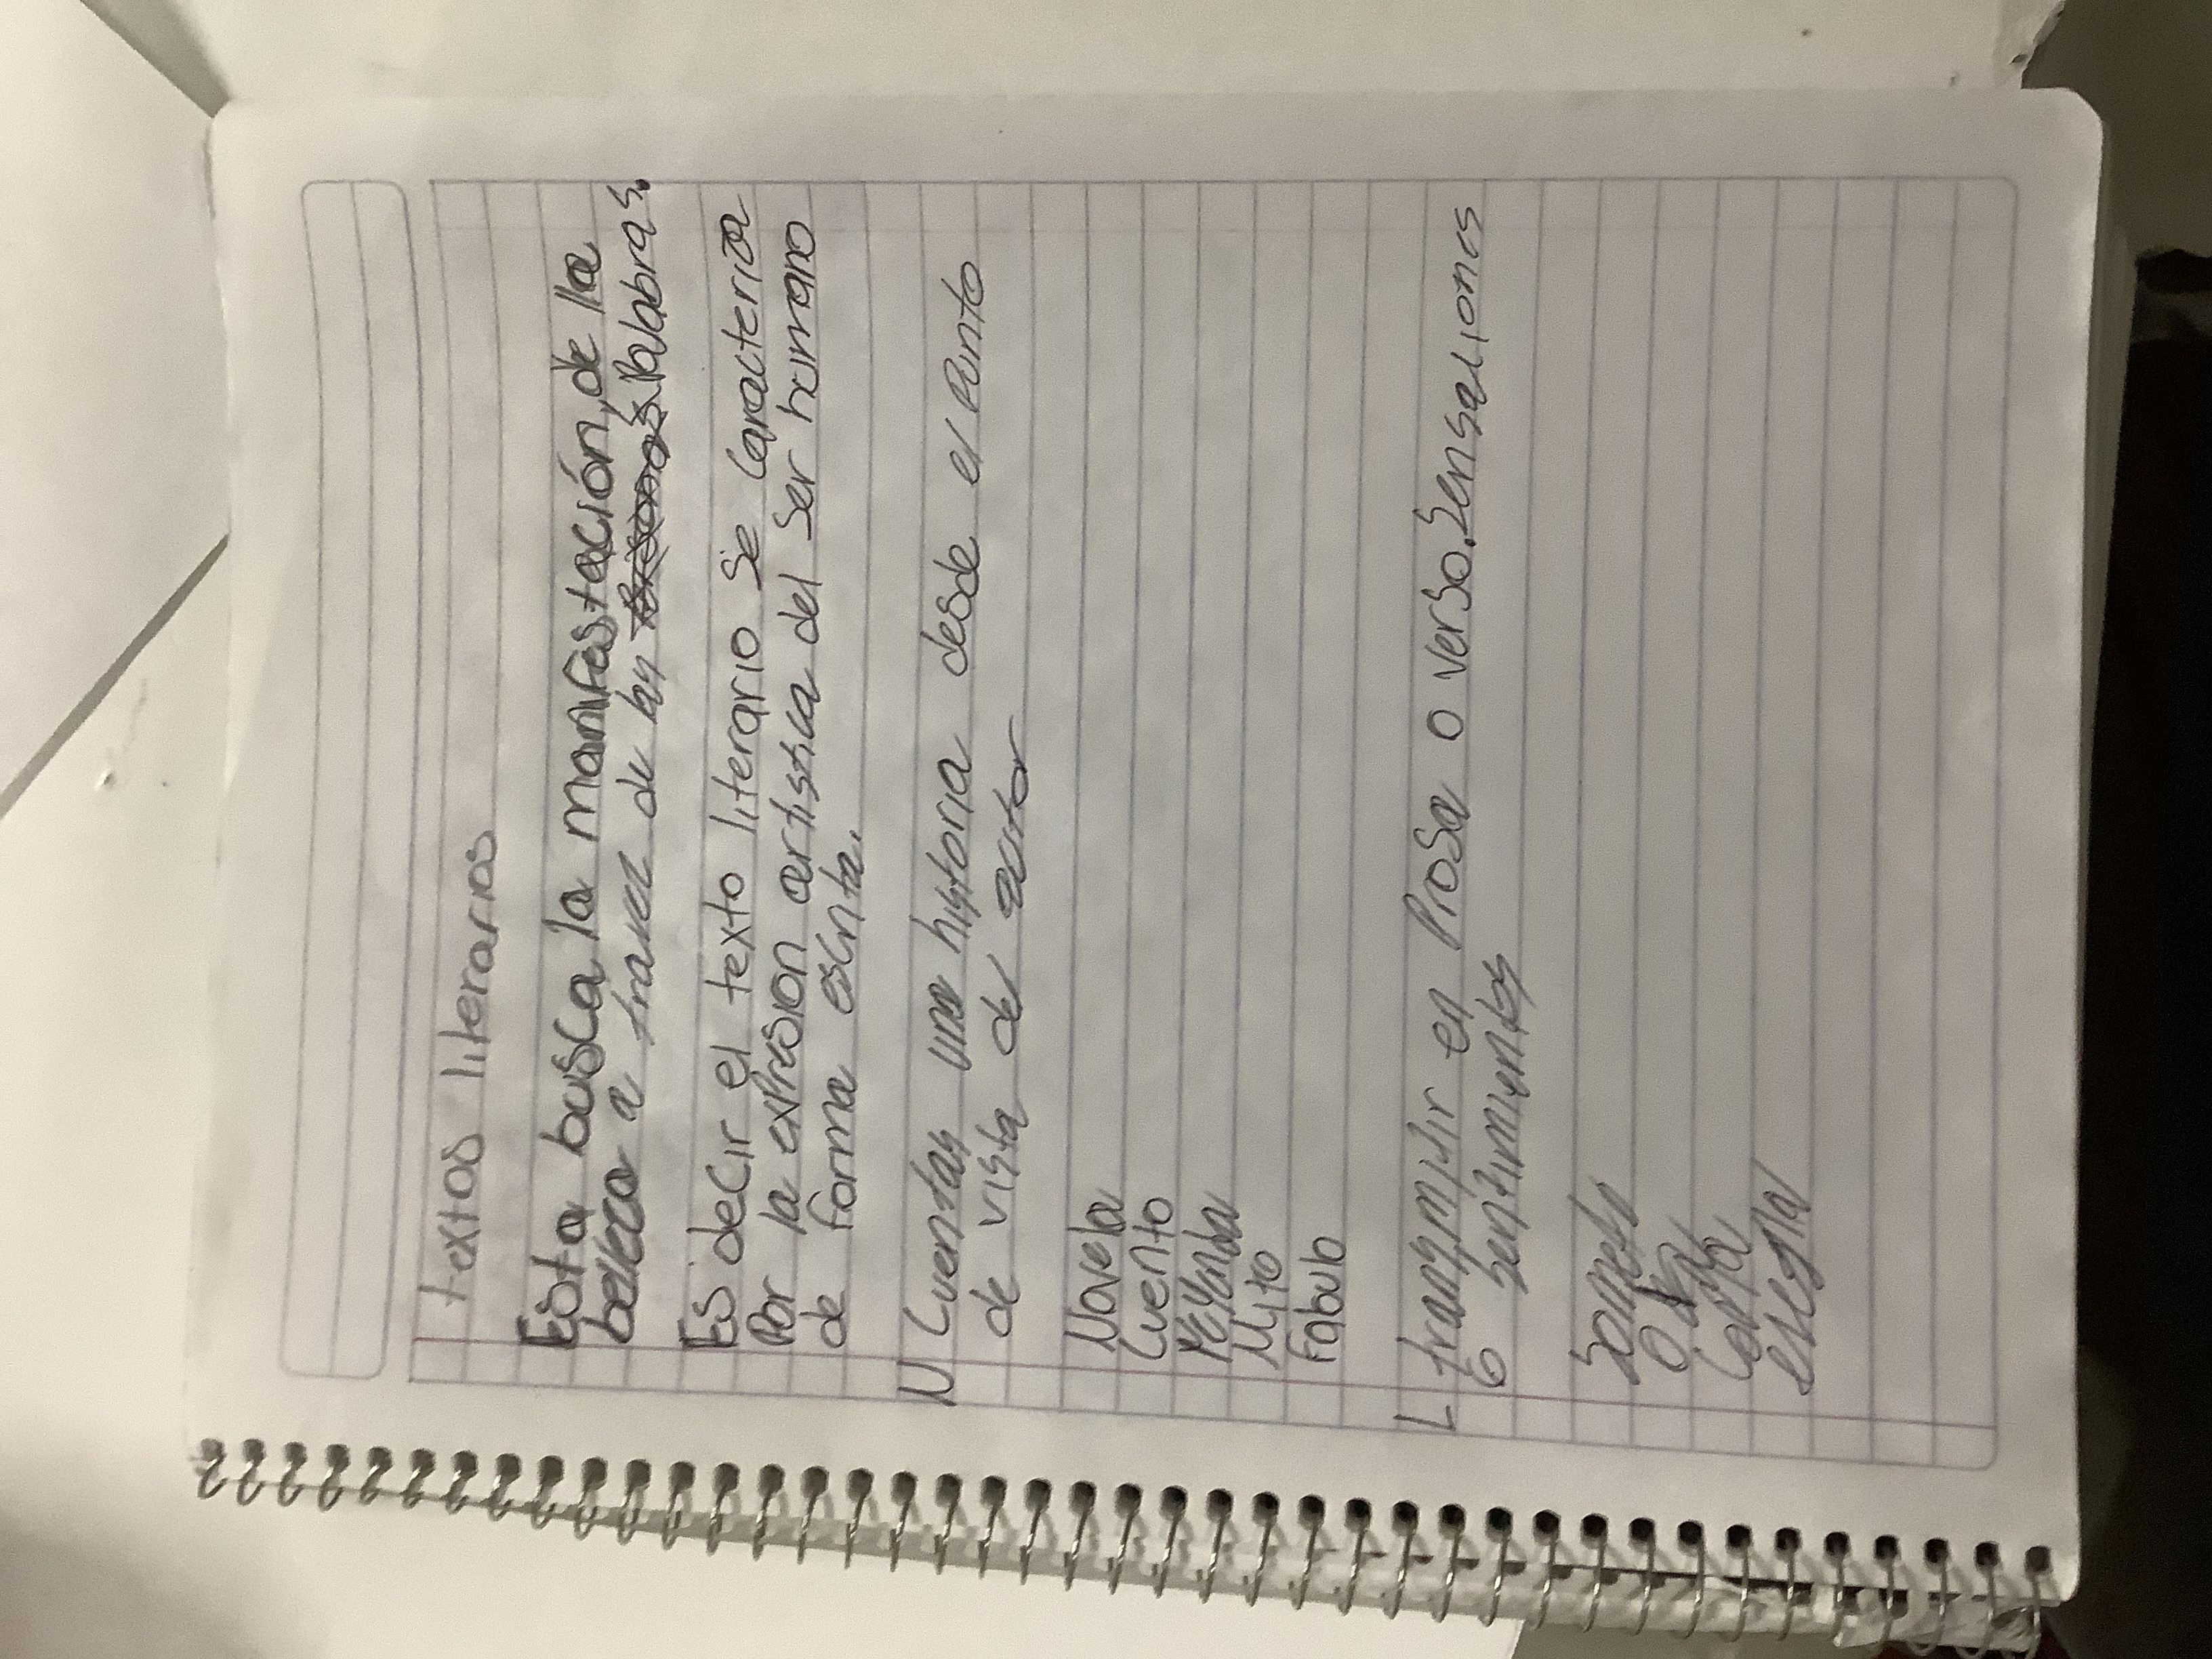 textos literarios
Esta busca la manifestación, de la
belleza a travez de las palabras.
Es decir el texto literario se caracteriza
Por la expresion artistica del ser humano
de forma escrita.
N Cuentas una historia desde el punto
de vista del autor
Novela
Cuento
Leyenda
Mito
Fabula
L transmitir en Prosa o verso. Sensaciones
o sentimientos
Soneto
Oda